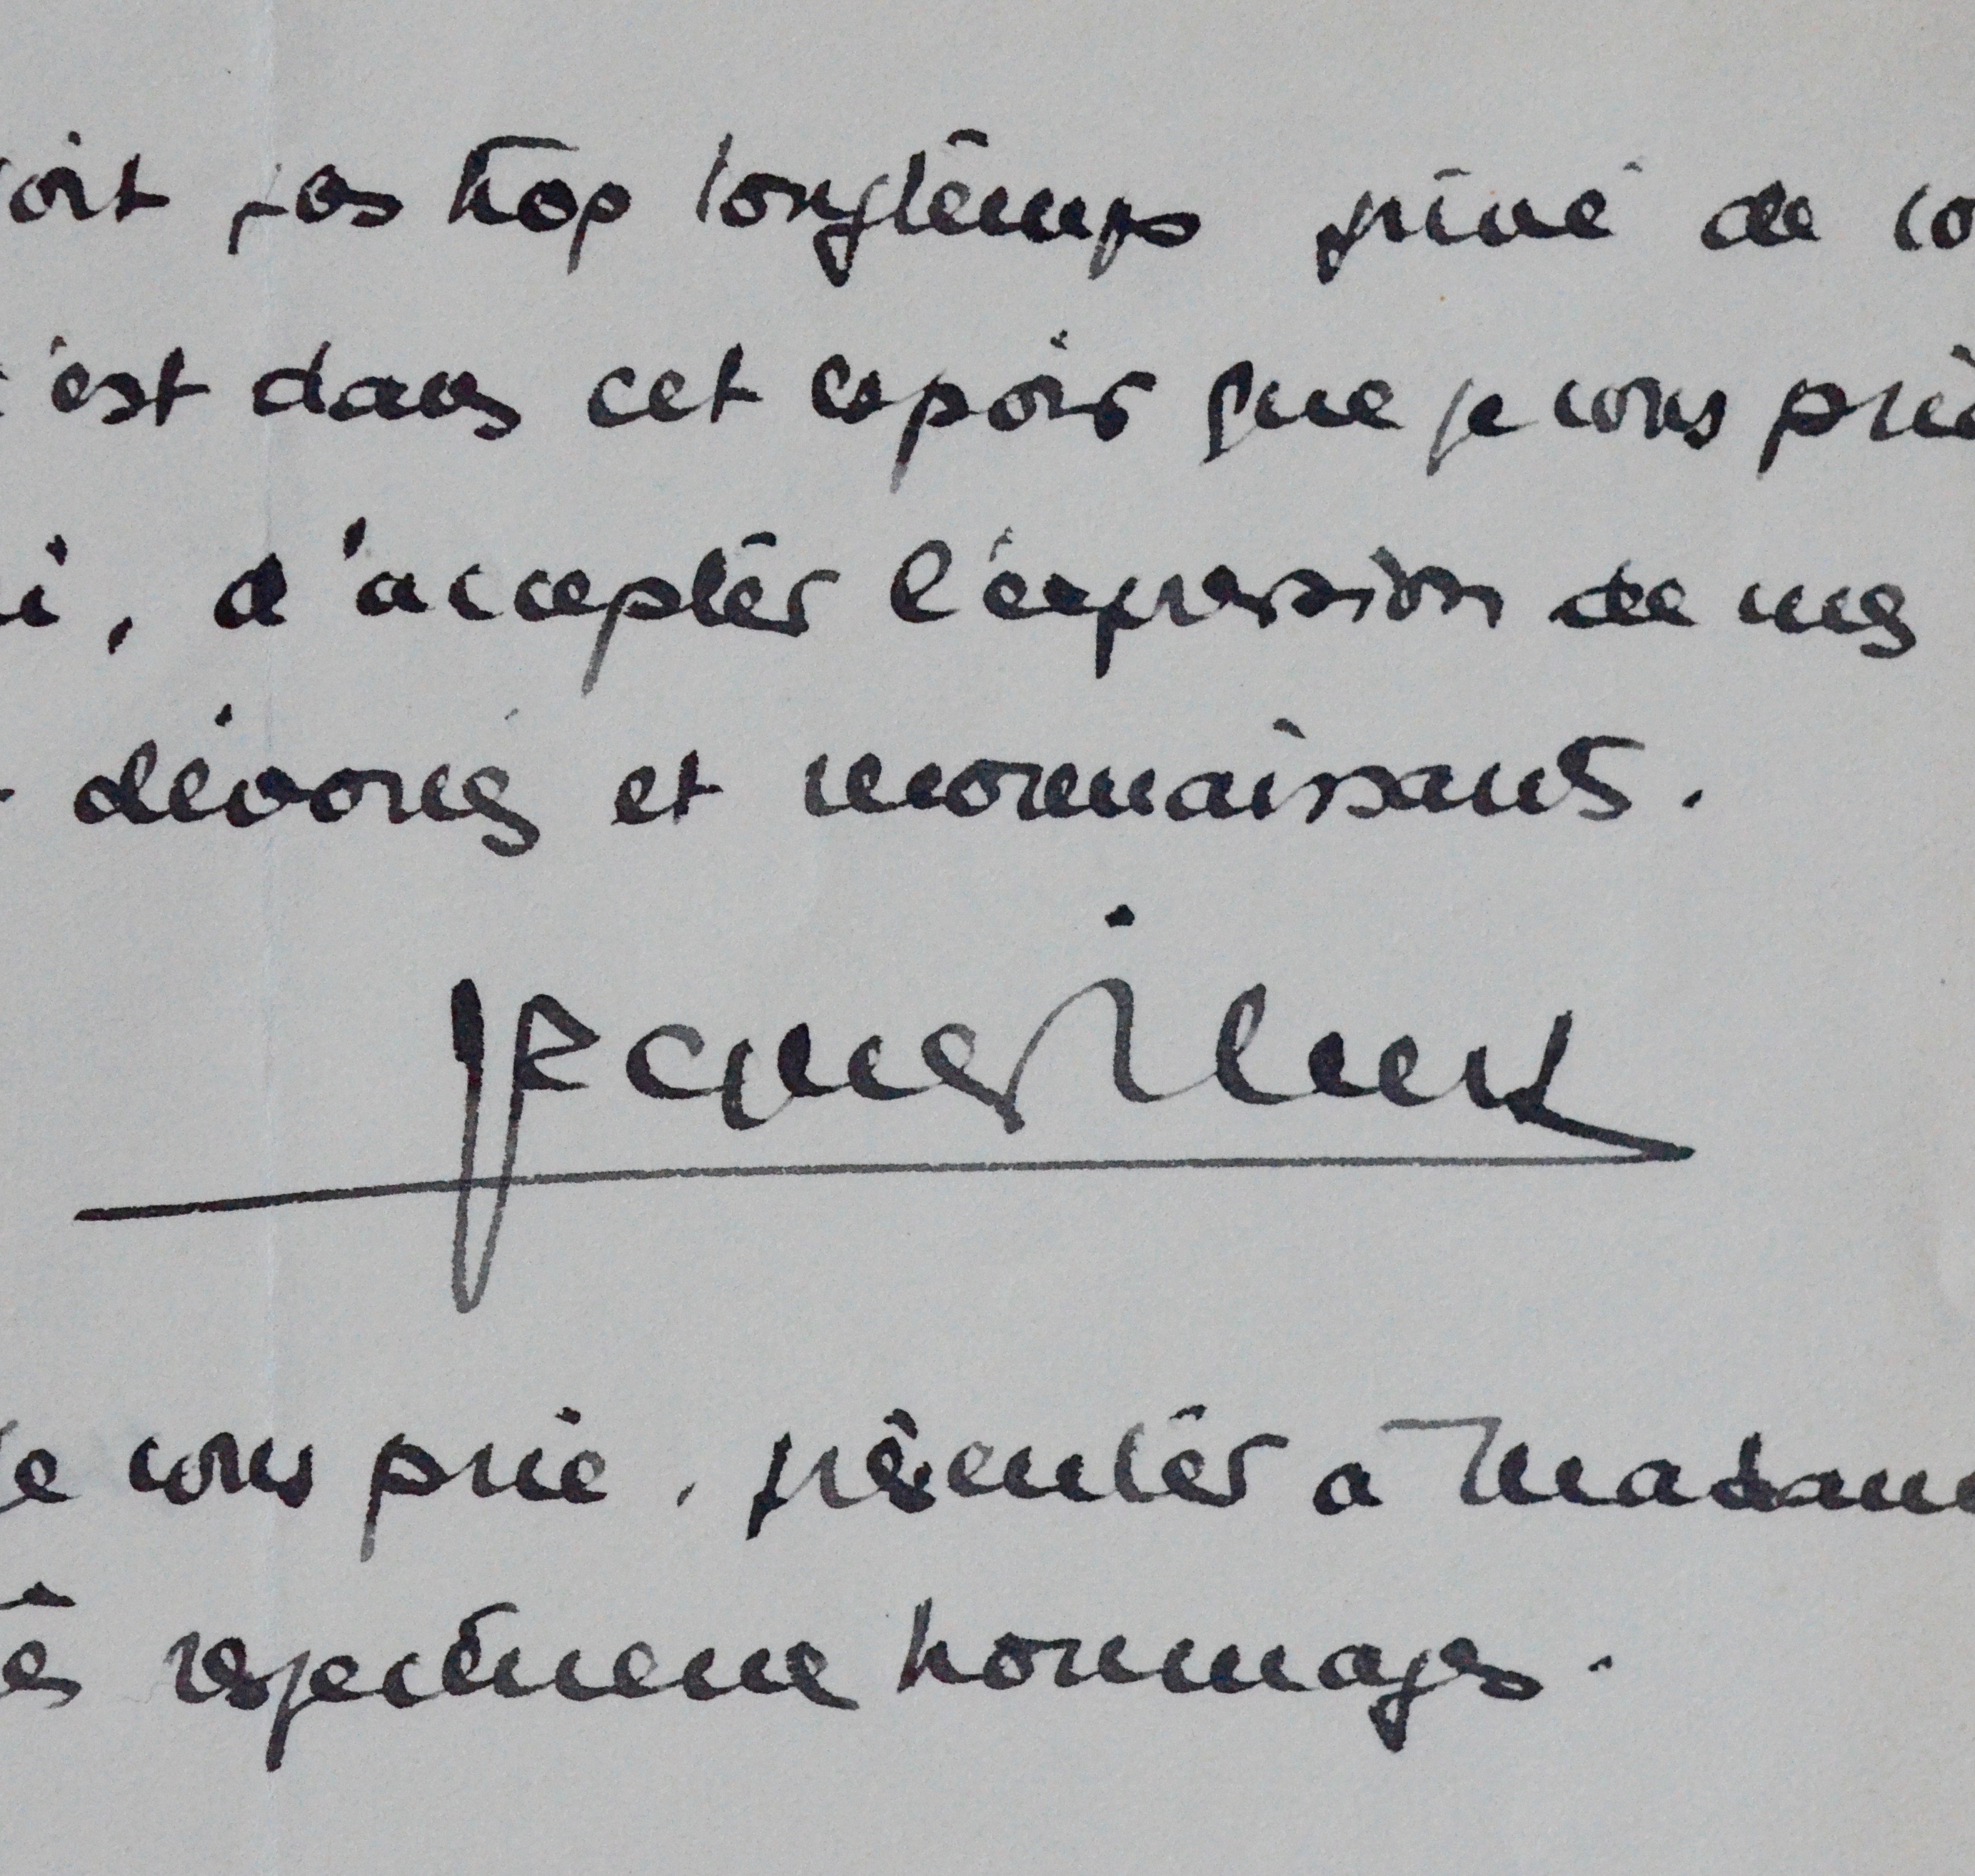 soit pas trop longtemps privé de vo
c'est dans cet espoir que je vous prie
i, d'accepter l'expression de mes
dévoués et reconnaissants.
Jacques
je vous prie, présenter à Madame
respectueux hommages.